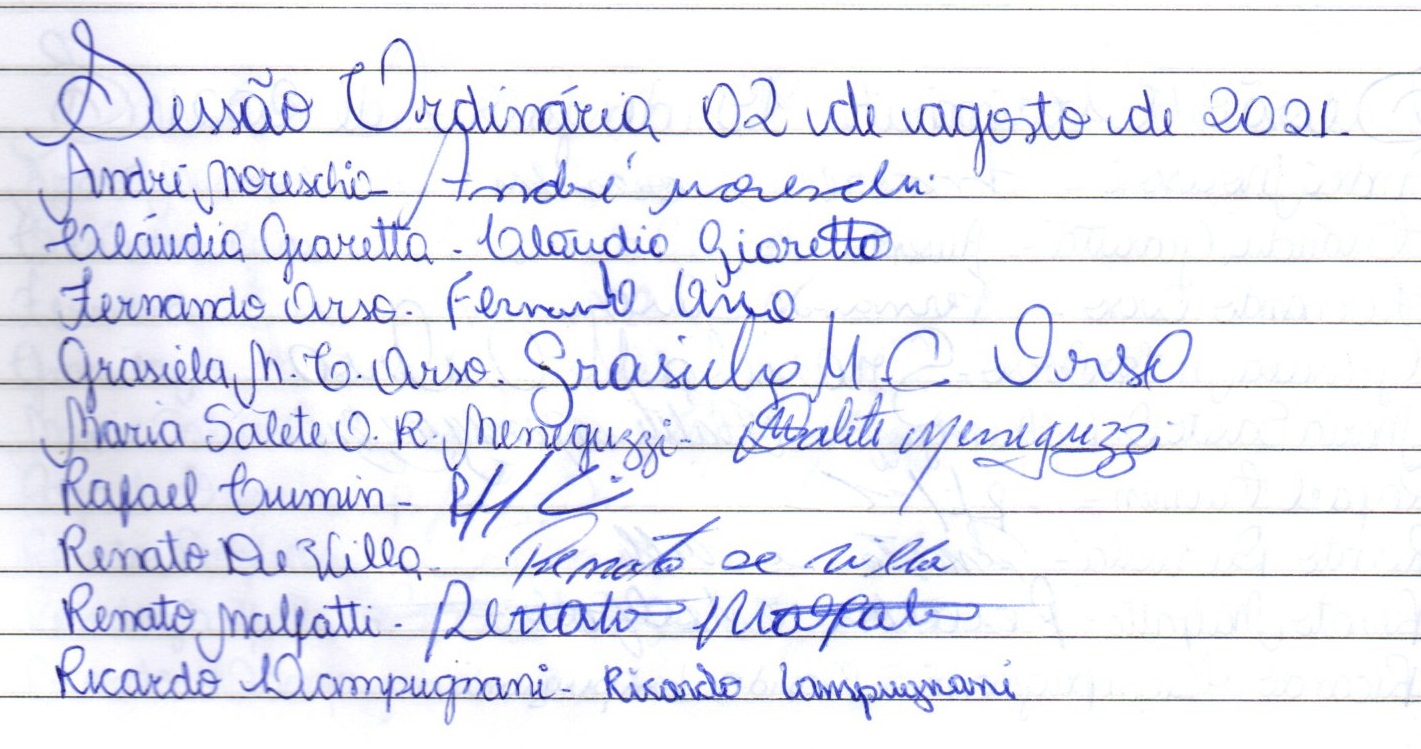 Sessão Ordinária 02 de agosto de 2021.
André Moreschi - André Moreschi
Cláudia Giaretta - Cláudia Giaretta
Fernando Orso - Fernando Orso
Grasiela M. C. Orso. Grasiela M. C Orso
Maria Salete O. R. Meneguzzi - Salete Meneguzzi
Rafael Cumin -
Renato De Villa - Renato de villa
Renato Malfatti - Renato Malfatti
Ricardo Lampugnani - Ricardo Lampugnani